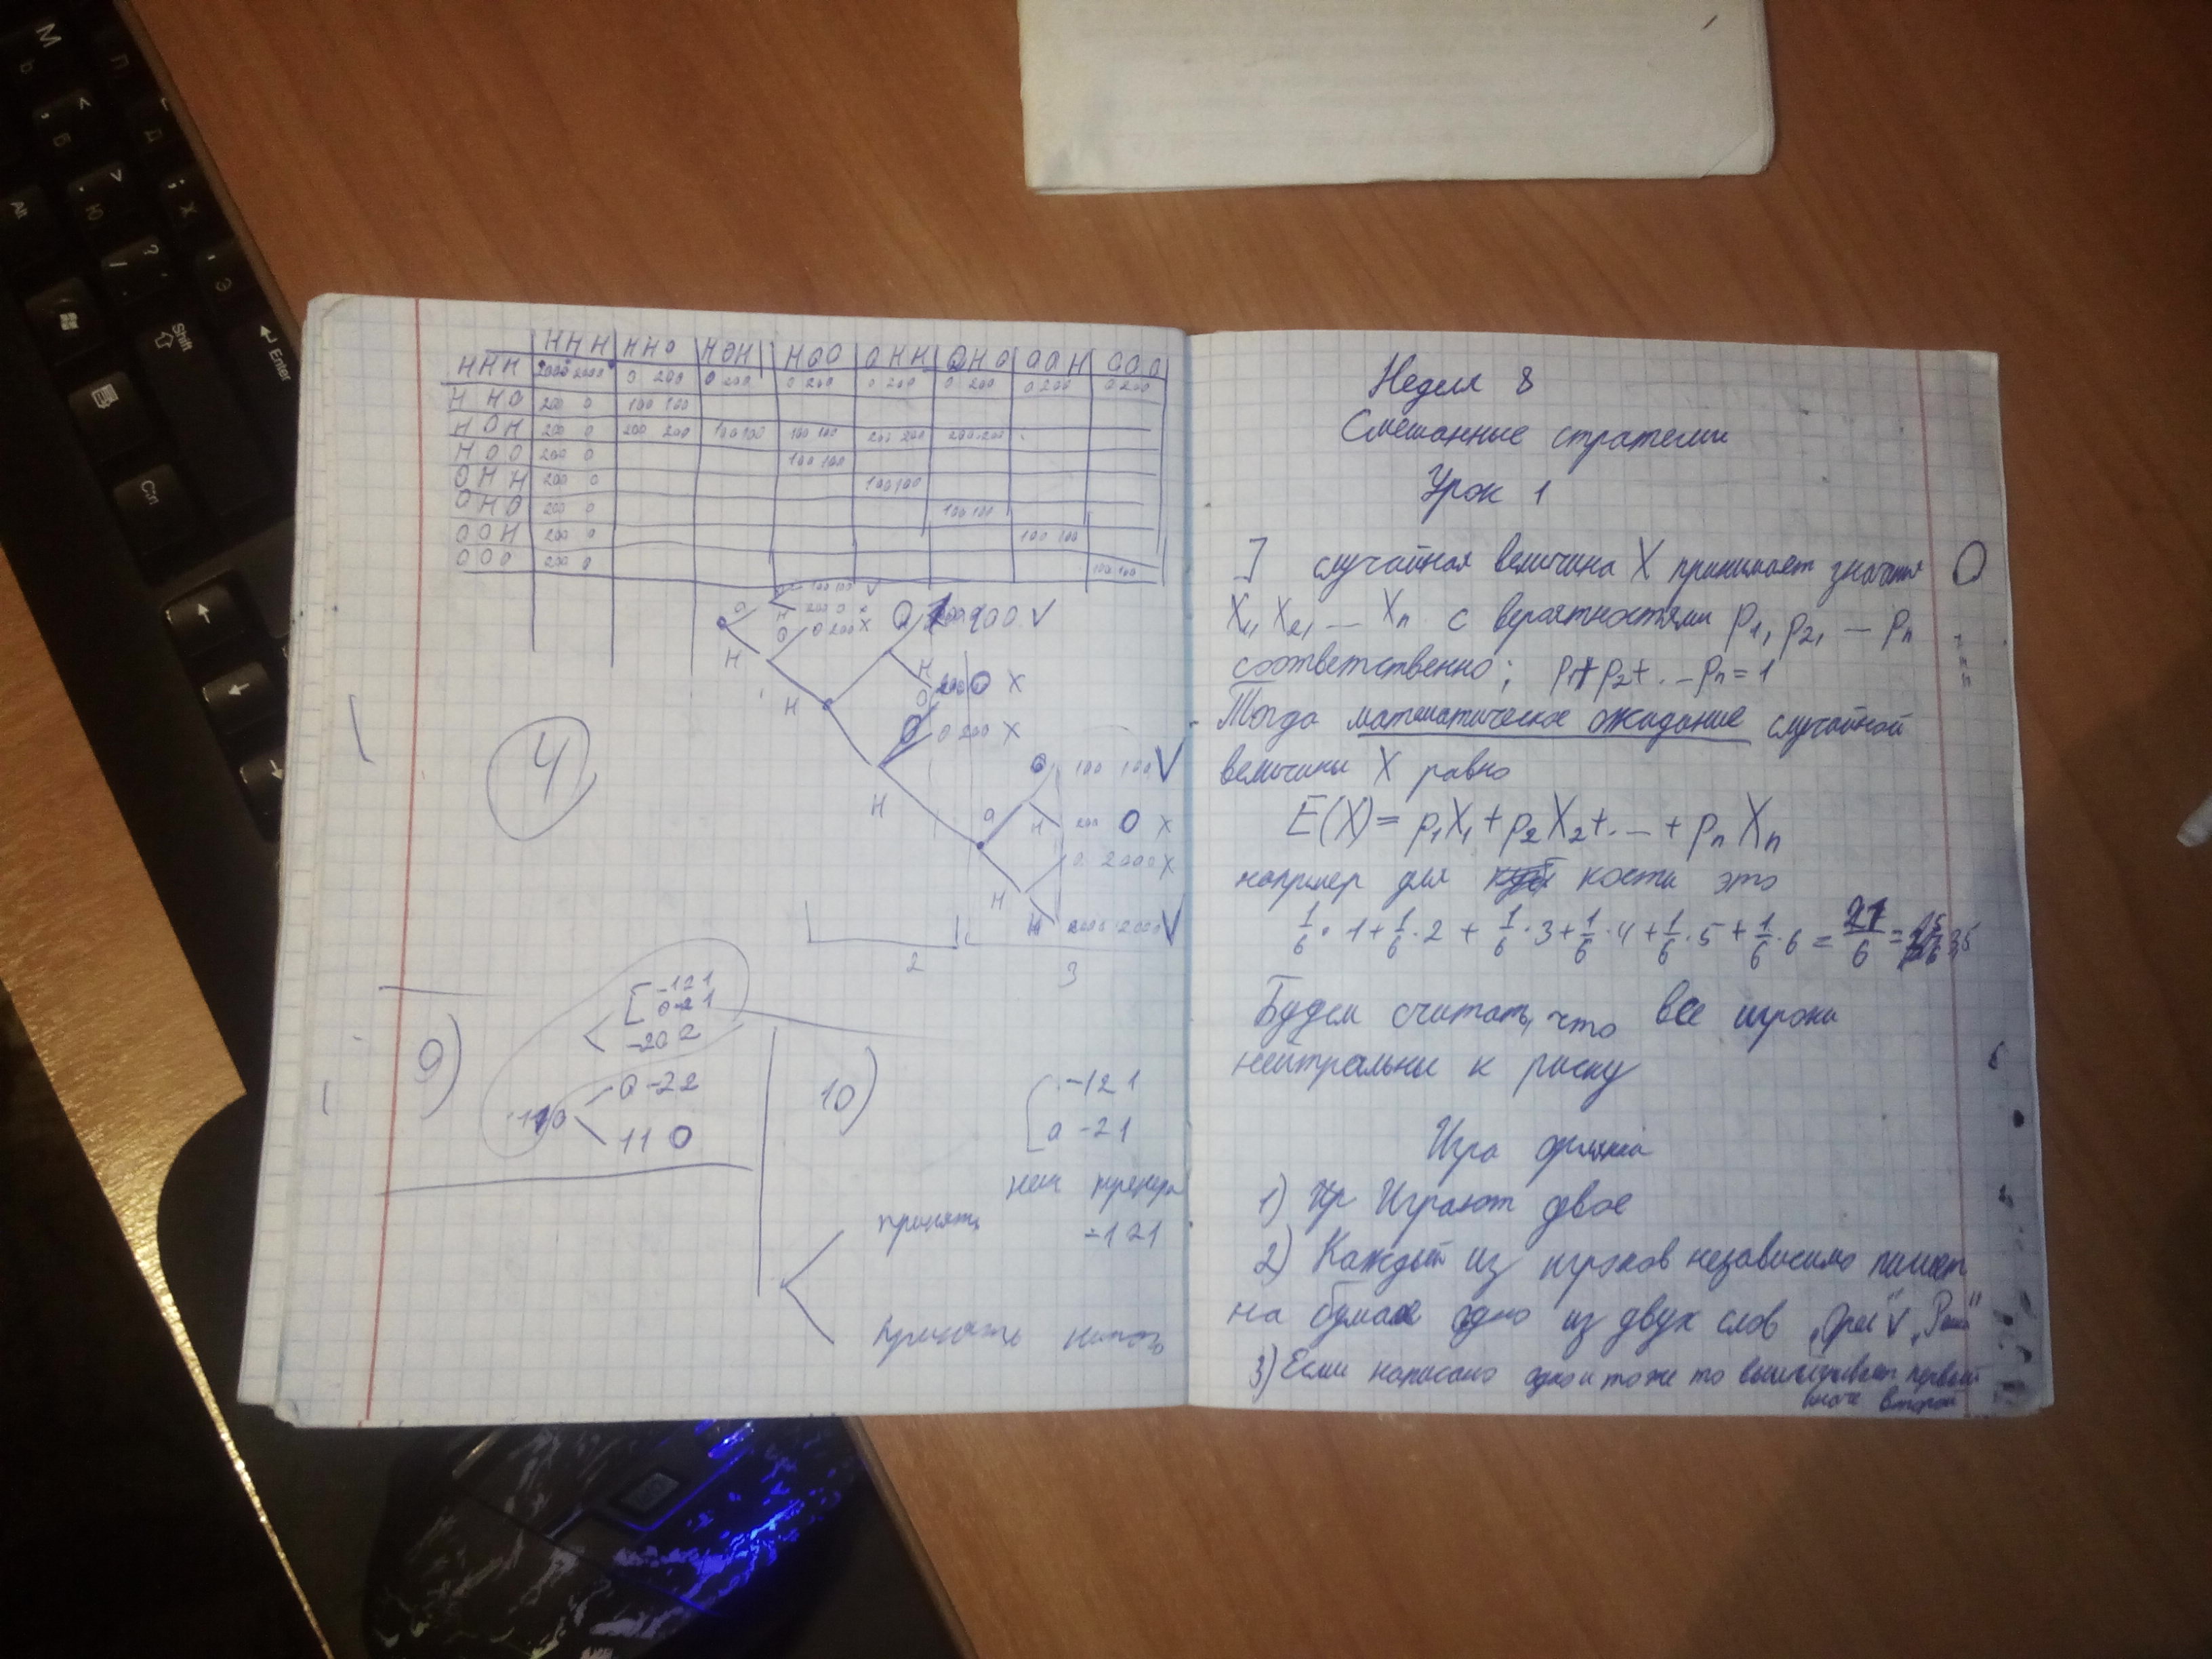 ННН ННО НОН НОО ОНН ОНО ООН ООО
ННН 2000 2000 0 200 0 200 0 200 0 200 0 200 0 200 0 200
ННО 200 0 100 100
НОН 200 0 200 200 100 100 100 100 200 200 200 200
НОО 200 0 100 100
ОНН 200 0 100 100
ОНО 200 0 100 100
ООН 200 0 100 100
ООО 200 0 100 100
О 100 100 V
Н 200 0 x
О 0 200 x
Н
О V
Н
Н 0 X
О 0 200 X
О 100 100 V
Н
О
Н 200 0 X
0 2000 X
Н
Н 2000 2000 V
2
3
4
9)
-1 2 1
0 -2 1
-2 0 2
0 -2 2
1 1 0
10)
-1 2 1
0 -2 1
принять
-1 2 1
Неделя 8
Смешанные стратегии
Урок 1
] случайная величина X принимает значения
X₁, X₂, ... Xn с вероятностями p₁, p₂, ... pn
соответственно; p₁+p₂+...pn=1
Тогда математическое ожидание случайной
величины X равно
E(X)= p₁X₁+p₂X₂+...+pnXn
например для кости это
1/6·1+1/6·2+1/6·3+1/6·4+1/6·5+1/6·6=21/6= 3,5
Будем считать, что все игроки
нейтральны к риску
Игра орлянка
1) Играют двое
2) Каждый из игроков независимо пишет
на бумаге одно из двух слов „Орел" V „Решка"
3) Если написано одно и тоже то выигрывает первый
иначе второй